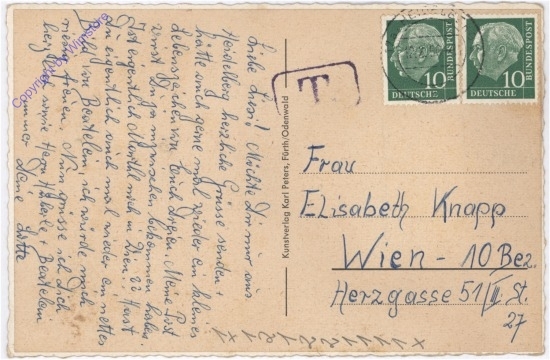 Liebe Liesi! Möchte Dir nur aus
Heidelberg herzliche Grüsse senden +
hätte auch gerne mal wieder ein kleines
Lebenszeichen von Euch Dreien. Meine Post
wirst Du inzwischen bekommen haben.
Ist eigentlich Marthl noch in Wien? Hast
Du eigentlich auch mal wieder ein nettes
Bild von Beatelein, ich würde mich
riesig freuen. Nun grüsse ich Dich
herzlichst sowie Herrn + Beatelein
immer Deine Lotte
Copyright by Wignstore
T
Kunstverlag Karl Peters, Fürth/Odenwald
10
DEUTSCHE
BUNDESPOST
10
DEUTSCHE
BUNDESPOST
Frau
Elisabeth Knapp
Wien - 10 Bez.
Herzgasse 51/II St.
27